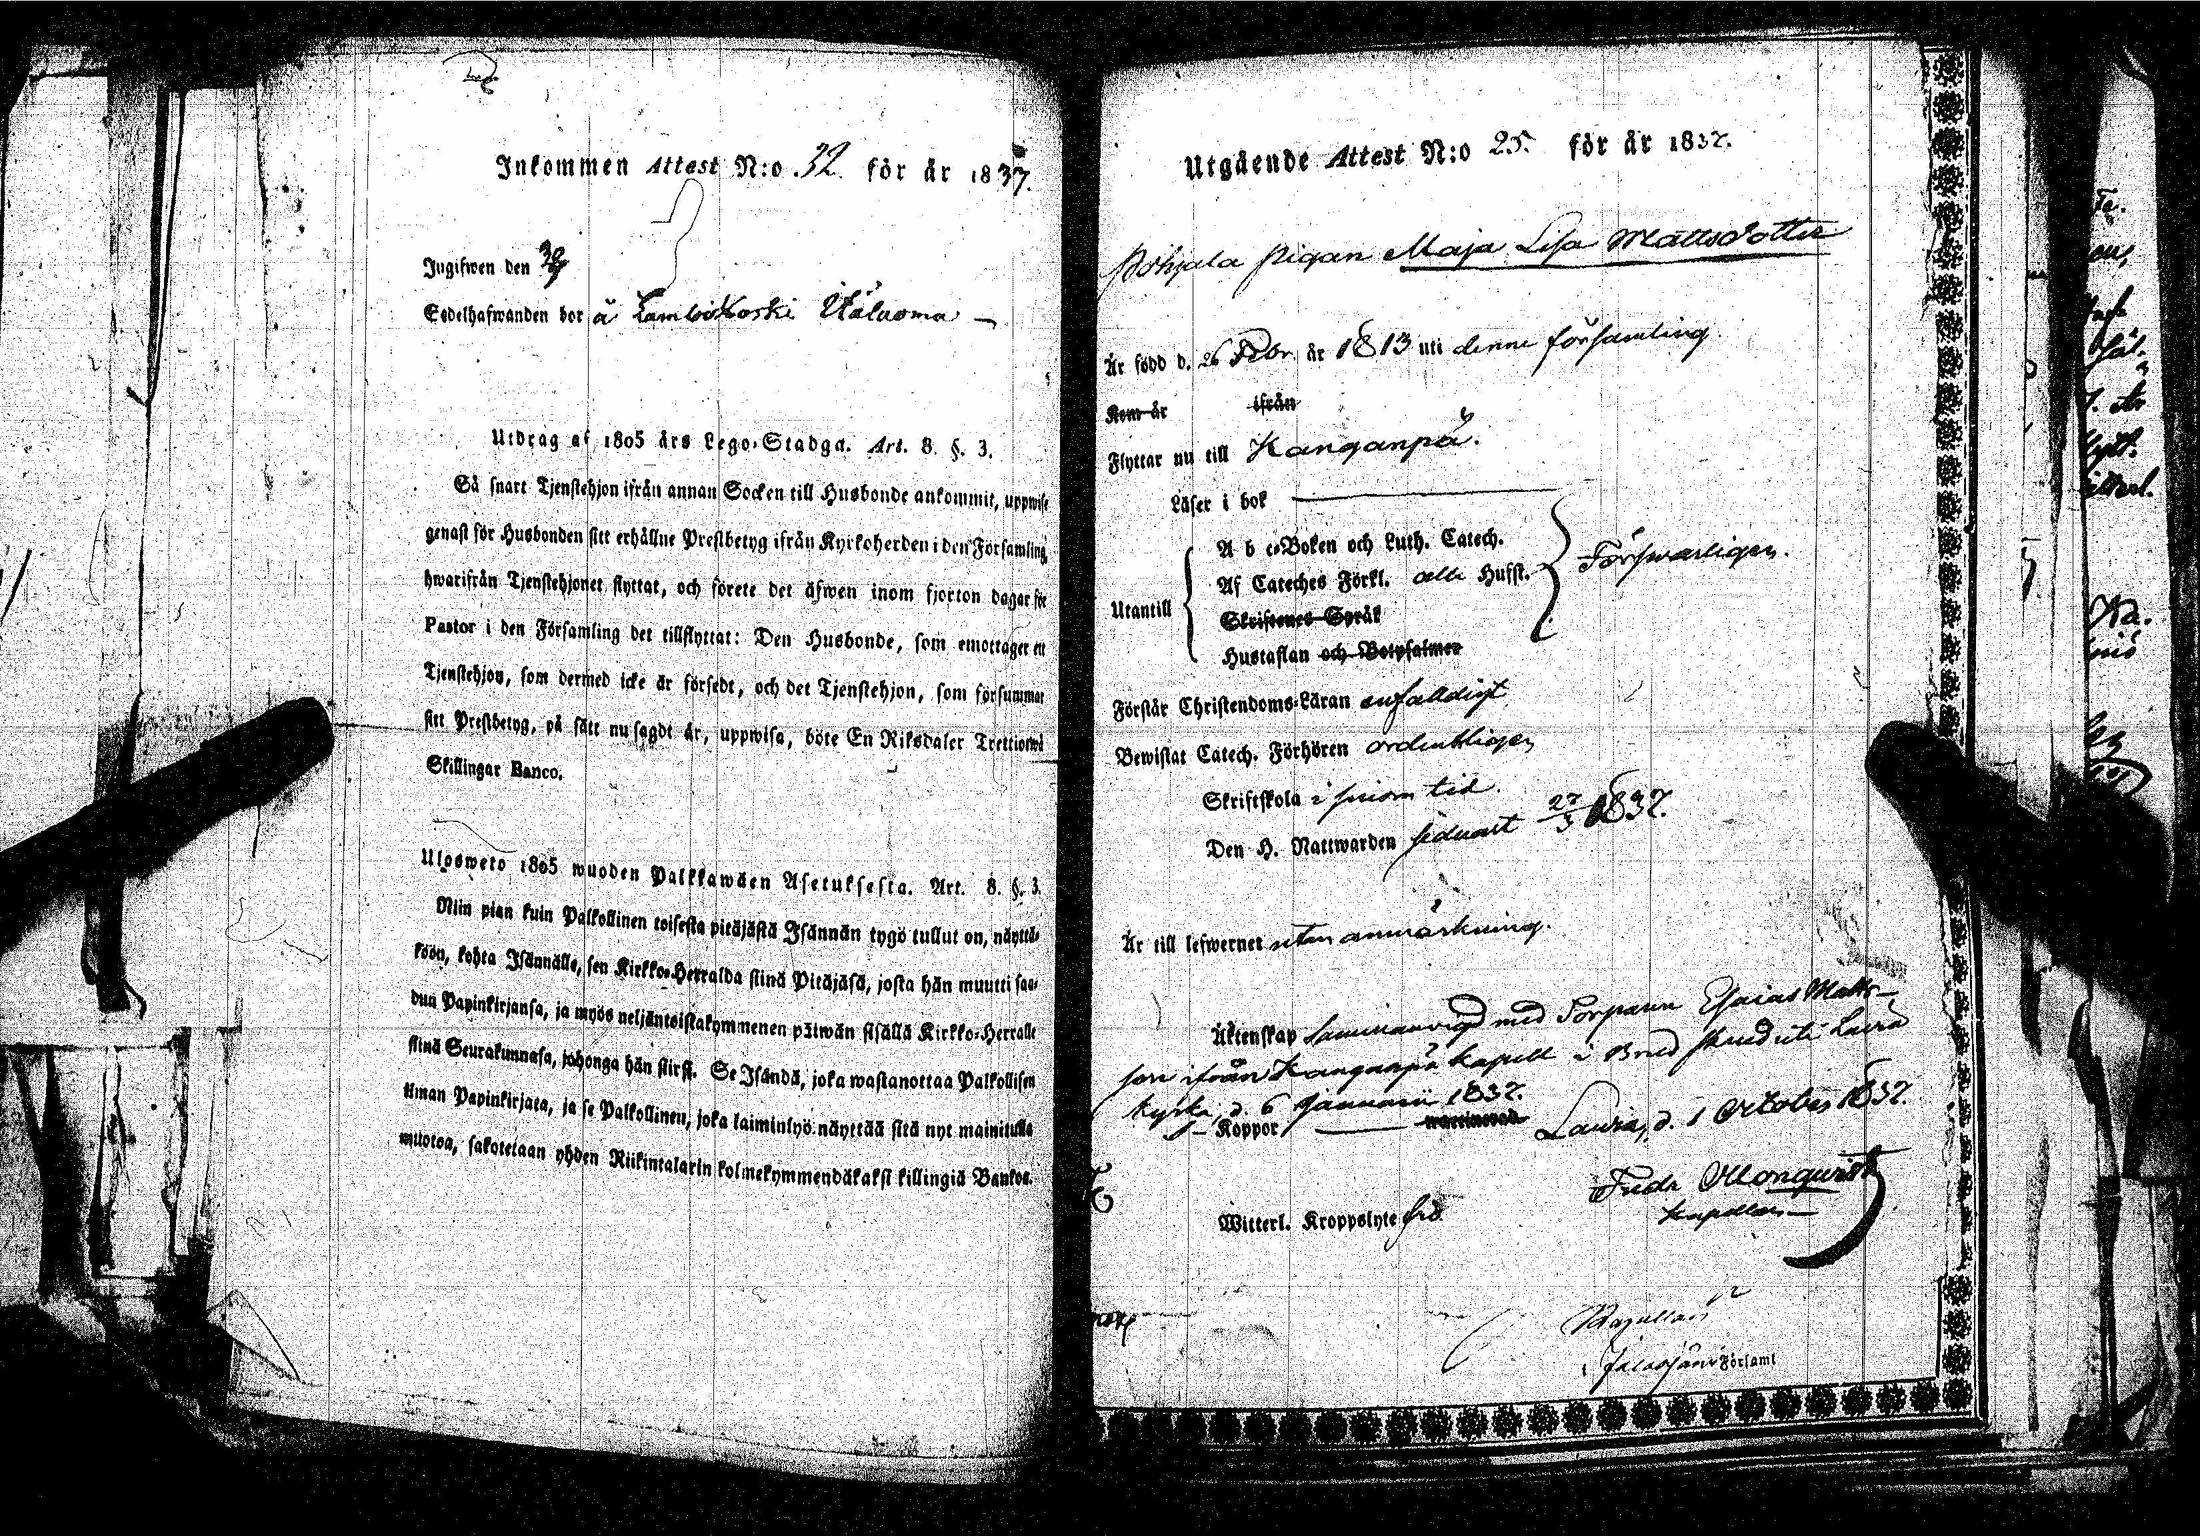 Inkommen Attest N:o 32. för år 1837.
Ingifwen den
Sedelhafwanden bor å
Utdrag af 1805 års Lego-Stadga. Art. 8. §. 3.
Så snart Tjenstehjon ifrån annan Socken till Husbonde ankommit, uppwise
genast för Husbonden sitt erhållne Prestbetyg ifrån Kyrkoherden i den Församling
hwarifrån Tjenstehjonet flyttat, och förete det äfwen inom fjorton dagar för
Pastor i den Församling det tillflyttat: Den Husbonde, som emottager ett
Tjenstehjon, som dermed icke är försedt, och det Tjenstehjon, som försummar
sitt Prestbetyg, på sätt nu sagdt är, uppwisa, böte En Riksdaler Trettiotwå
Skillingar Banco.
Ulosweto 1805 wuoden Palkkawäen Asetuksesta. Art. 8. §. 3.
Niin pian kuin Palkollinen toisesta pitäjästä Isännän tygö tullut on, näyttä-
köön, kohta Isännälle, sen Kirkko-Herralda siinä Pitäjäsä, josta hän muutti saa-
dun Papinkirjansa, ja myös neljäntoistakymmenen päiwän sisällä Kirkko-Herralle
siinä Seurakunnasa, johonga hän siirsi. Se Isändä, joka wastanottaa Palkollisen
ilman Papinkirjata, ja se Palkollinen, joka laiminlyö näyttää sitä nyt mainitulla
muotoa, sakotetaan yhden Riikintalarin kolmekymmendäkaksi killingiä Bankos.
Utgående Attest N:o 25. för år 1837.
Pohjala Pigan Maja Lisa Mattsdotter
Är född d. 26 Febr. år 1813 uti denne församling.
Kom år ifrån
Flyttar nu till Kanganpä.
Läser i bok
A b c-Boken och Luth. Catech.
Af Cateches Förkl. alla Hufst. Förswarligen.
Utantill
Skriftenes Språk
Hustaflan och Botpsalmer
Förstår Christendoms-Läran enfaldigt
Bewistat Catech. Förhören ordentligen
Skriftskola i sinom tid.
Den H. Nattwarden sednast 27/3 1837.
Är till lefwernet utan anmärkning.
Äktenskap med Torparen Esaias Matts-
son ifrån Kanganpä kapell i Brudstund uti Laviâ
kyrka, d. 6 Januarii 1837.
Koppor Lavia, d. 1 October 1837.
Fredr Monqvist
Kapellan
Witterl. Kroppslyte
Jalasjärvi Församl